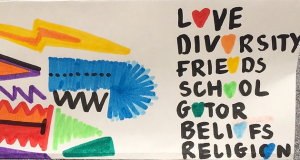 L♥VE
DIV♥RSITY
FRIE♥DS
SCH♥OL
G♥TOR
BELI♥FS
RELIGI♥N